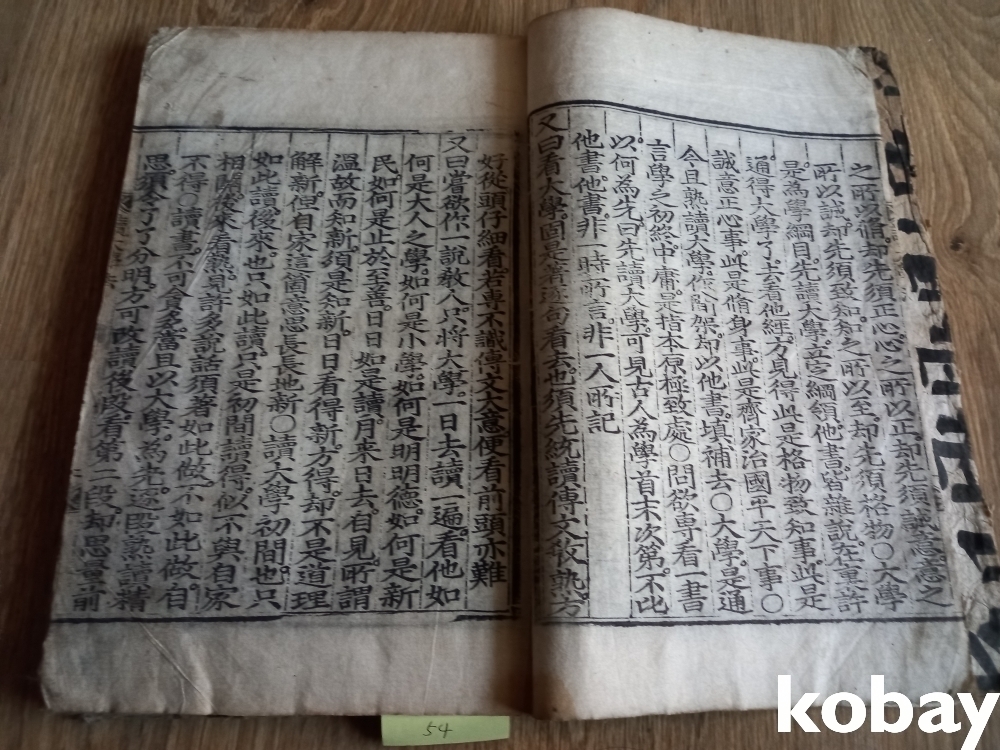 之所以脩却先須正心心之所以正却先須誠意意之
所以誠却先須致知知之所以至却先須格物○大學
是為學綱目先讀大學立定綱領他書皆雜說在裏許
通得大學了去看他經方見得此是格物致知事此是
誠意正心事此是脩身事此是齊家治國平天下事○
今且熟讀大學作間架却以他書填補去○大學是通
言學之初終中庸是指本原極致處○問欲專看一書
以何為先曰先讀大學可見古人為學首末次第不比
他書他書非一時所言非一人所記
又曰看大學固是著逐句看去也須先統讀傳文敎熟方
好從頭仔細看若專不識傳文大意便看前頭亦難
又曰嘗欲作一說敎人只將大學一日去讀一遍看他如
何是大人之學如何是小學如何是明明德如何是新
民如何是止於至善日日如是讀月來日去自見所謂
溫故而知新須是知新日日看得新方得却不是道理
解新但自家這箇意思長長地新○讀大學初間也只
如此讀後來也只如此讀只是初間讀得似不與自家
相關後來看熟見許多說話須著如此做不如此做自
不得○讀書不可貪多當且以大學為先逐段熟讀精
思須令了了分明方可改讀後段看第二段却思量前
54
kobay